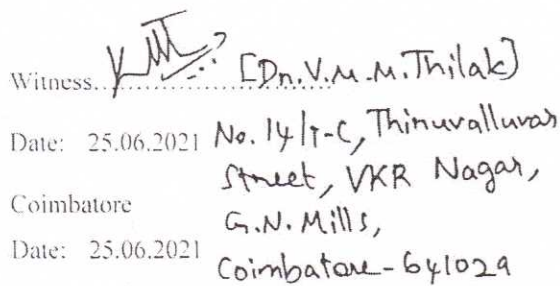 Witness.................... [Dr. V.M.M. Thilak]
Date: 25.06.2021 No. 14/1-C, Thiruvalluvar
Street, VKR Nagar,
Coimbatore
G.N. Mills,
Date: 25.06.2021
Coimbatore - 641029